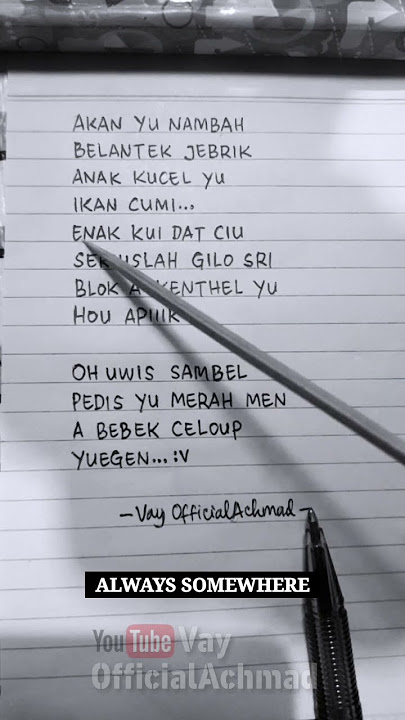 AKAN YU NAMBAH
BELANTEK JEBRIK
ANAK KUCEL YU
IKAN CUMI...
ENAK KUI DAT CIU
GILO SRI
BLOK KENTHEL YU
HOU APIIIK
OH UWIS SAMBEL
PEDIS YU MERAH MEN
A BEBEK CELOUP
YUEGEN... :V
- Vay OfficialAchmad -
ALWAYS SOMEWHERE
YouTube Vay
OfficialAchmad